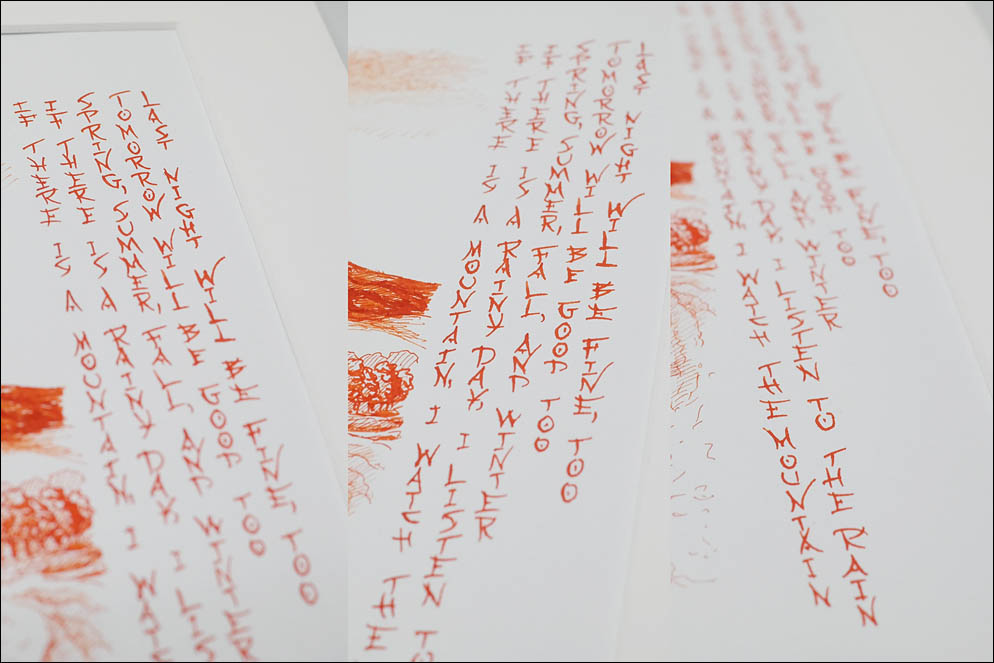 LAST NIGHT WILL BE FINE, TOO
TOMORROW WILL BE GOOD TOO
SPRING, SUMMER, FALL, AND WINTER
IF THERE IS A RAINY DAY, I LIS
IF THERE IS A MOUNTAIN, I WATC
LAST NIGHT WILL BE FINE, TOO
TOMORROW WILL BE GOOD TOO
SPRING, SUMMER, FALL, AND WINTER
IF THERE IS A RAINY DAY, I LISTEN TO
IF THERE IS A MOUNTAIN, I WATCH THE
WILL BE FINE, TOO
WILL BE GOOD TOO
FALL, AND WINTER
A RAINY DAY, I LISTEN TO THE RAIN
A MOUNTAIN, I WATCH THE MOUNTAIN